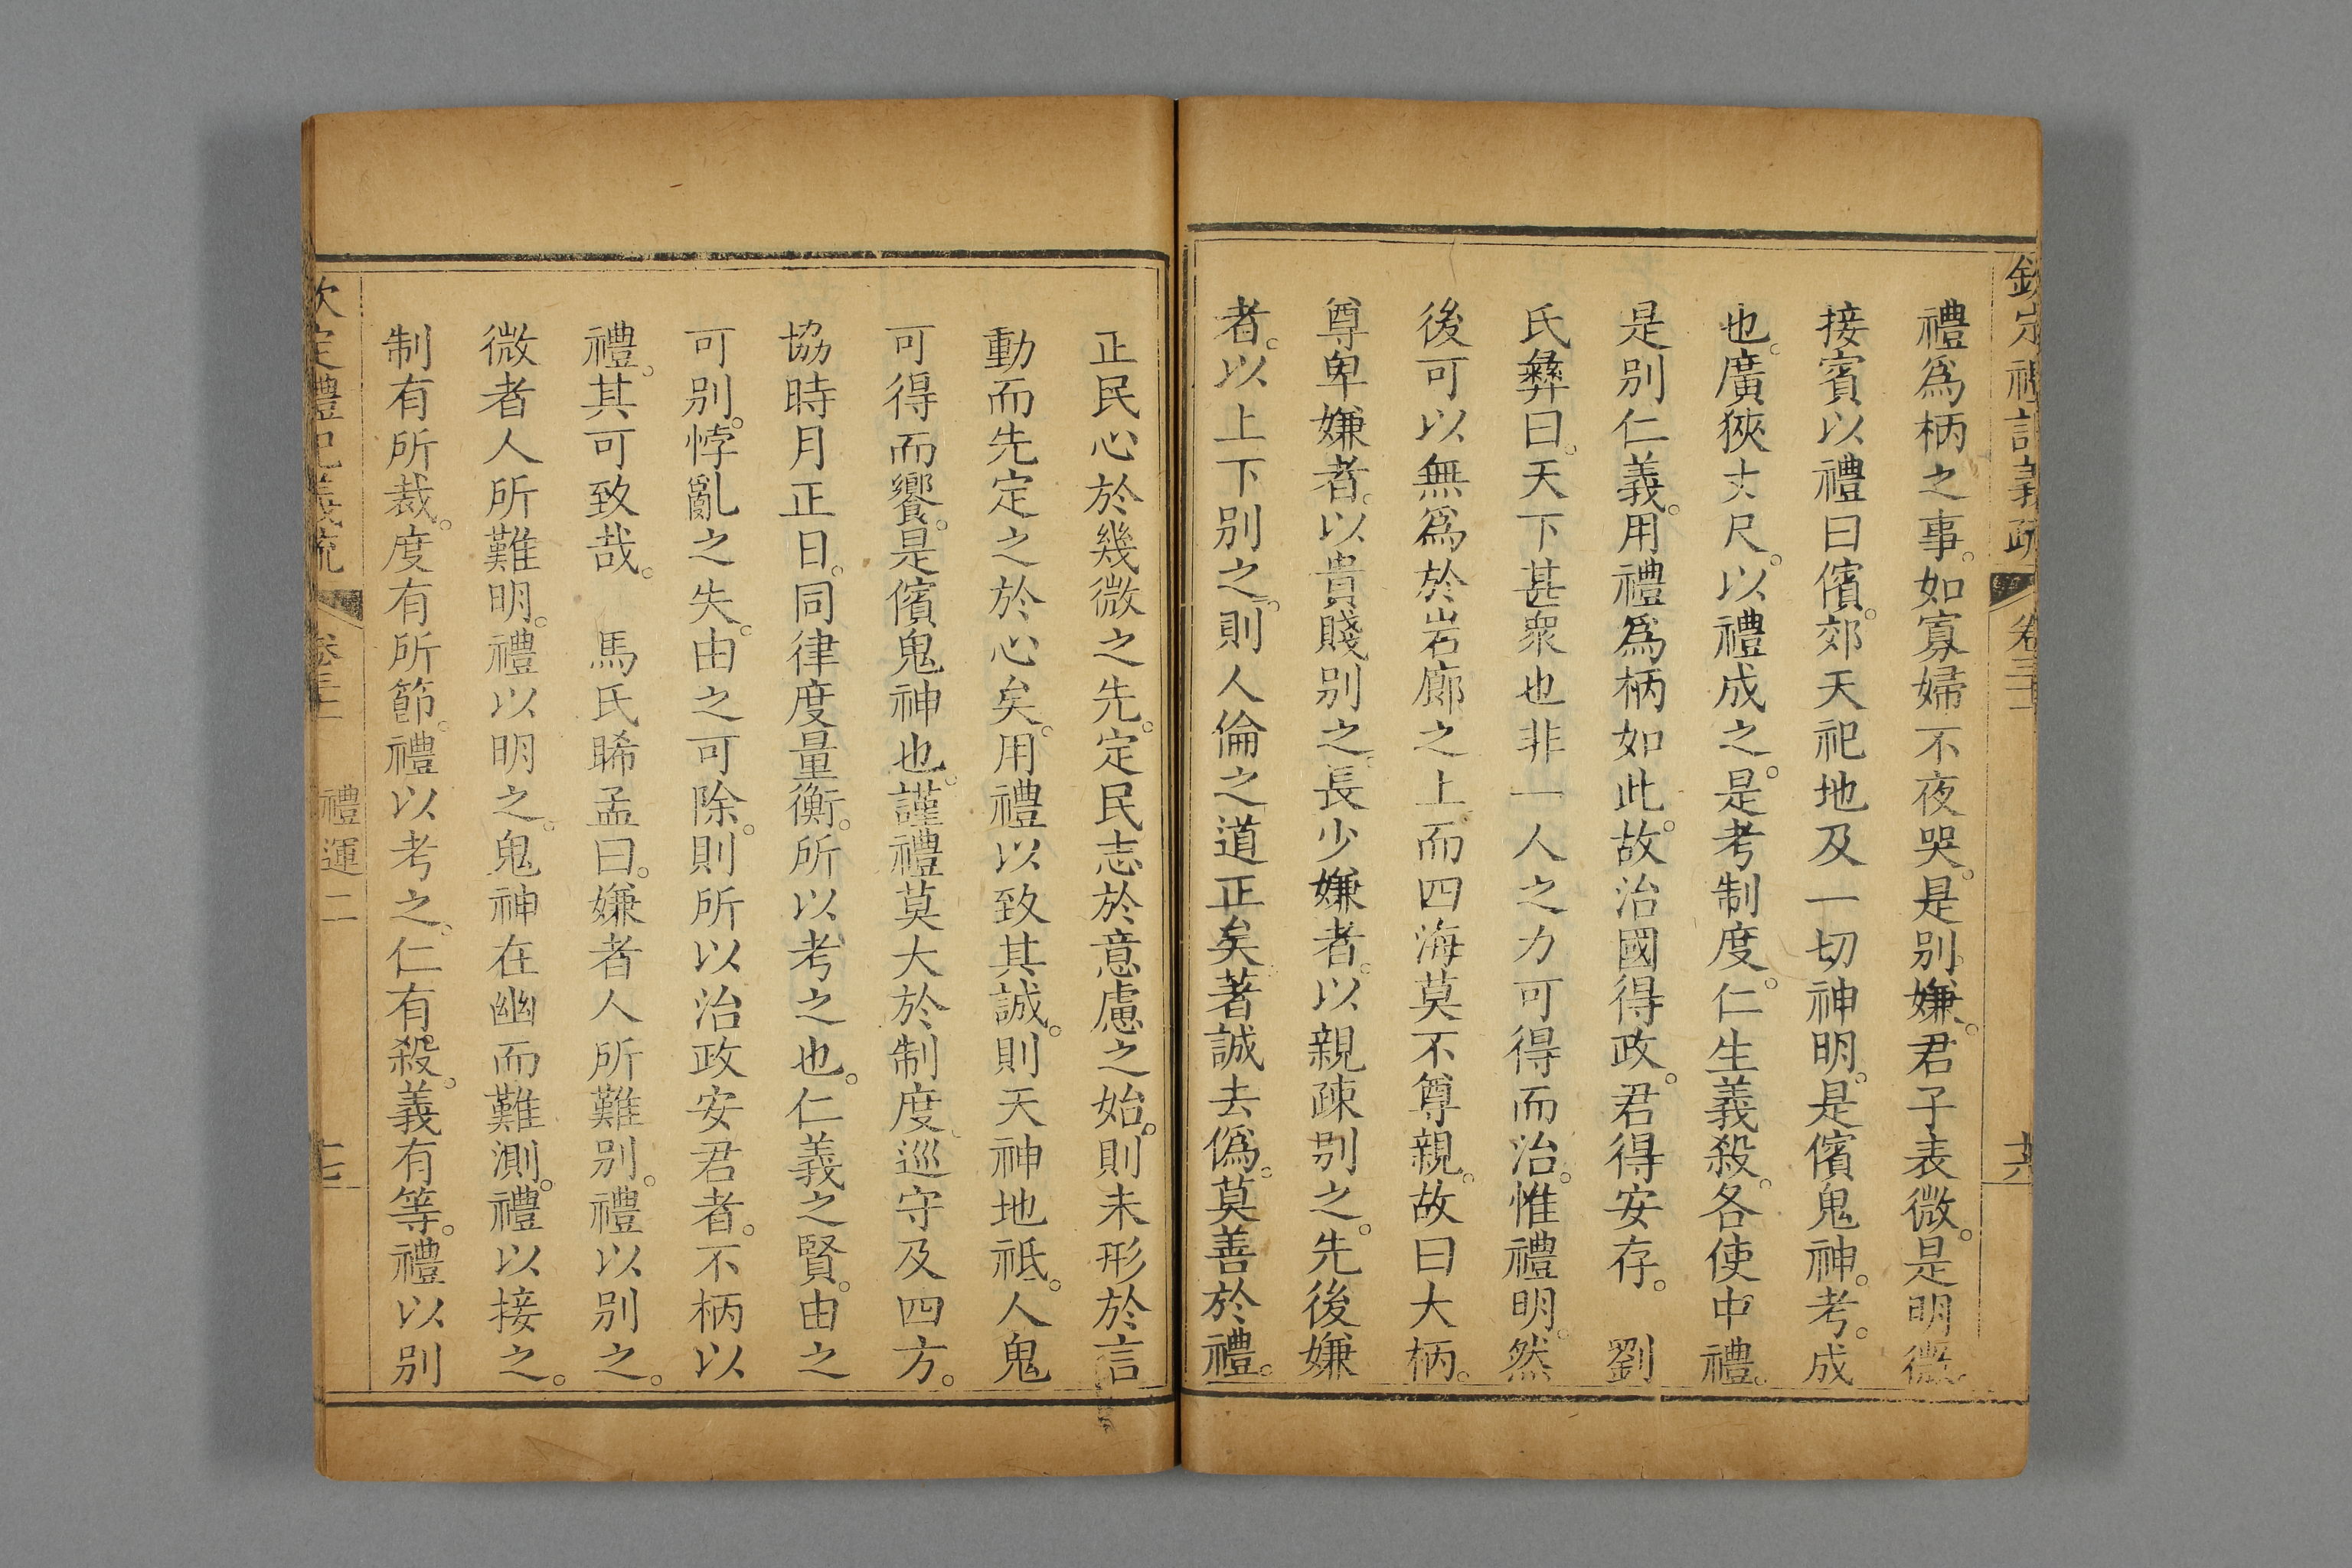 欽定禮記義疏 卷三十 六
禮爲柄之事。如寡婦不夜哭。是别嫌。君子表微。是明微。
接賓以禮曰儐。郊天祀地及一切神明。是儐鬼神。考。成
也。廣狹丈尺。以禮成之。是考制度。仁生義殺。各使中禮。
是别仁義。用禮爲柄如此。故治國得政。君得安存。 劉
氏彝曰。天下甚衆也非一人之力可得而治。惟禮明。然
後可以無爲於岩廊之上。而四海莫不尊親。故曰大柄。
尊卑嫌者。以貴賤别之。長少嫌者。以親疎别之。先後嫌
者。以上下别之。則人倫之道正矣。著誠去僞。莫善於禮。
正民心於幾微之先。定民志於意慮之始。則未形於言
動而先定之於心矣。用禮以致其誠。則天神地祗。人鬼
可得而饗。是儐鬼神也。謹禮莫大於制度。巡守及四方。
協時月正日。同律度量衡。所以考之也。仁義之賢。由之
可别。悖亂之失。由之可除。則所以治政安君者。不柄以
禮。其可致哉。 馬氏睎孟曰。嫌者人所難别。禮以别之。
微者人所難明。禮以明之。鬼神在幽而難測。禮以接之。
制有所裁。度有所節。禮以考之。仁有殺。義有等。禮以别
欽定禮記義疏 卷三十 禮運二 七